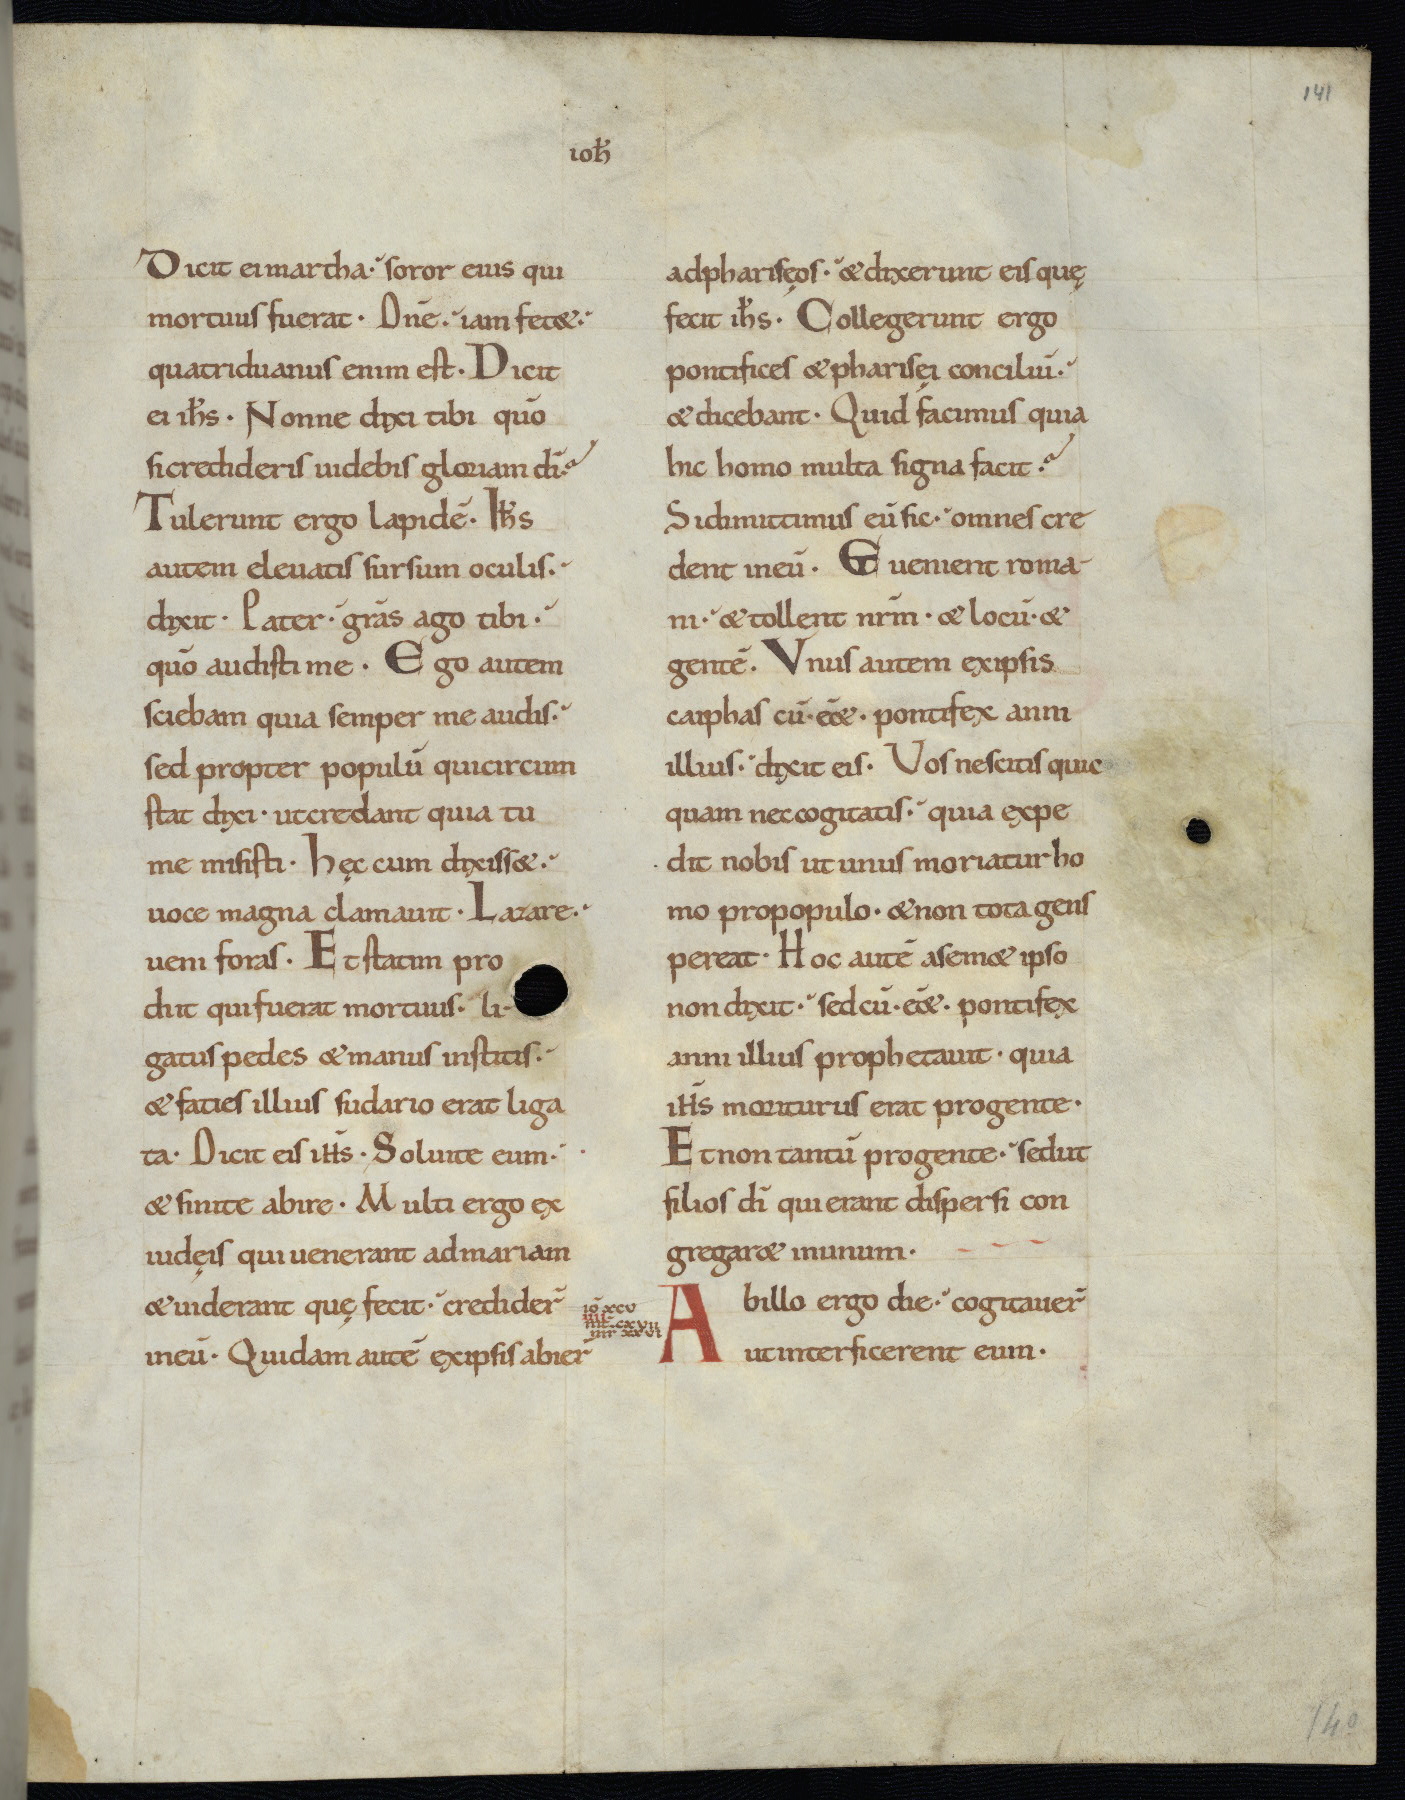 141
ioħ
Dicit ei martha· soror eius qui
mortuus fuerat· Dn̄e· iam fet&·
quatriduanus enim est· Dicit
ei iħs· Nonne dixi tibi quō
si credideris uidebis gloriam dī·
Tulerunt ergo lapidē· Iħs
autem eleuatis sursum oculis·
dixit· Pater· grās ago tibi·
quō audisti me· Ego autem
sciebam quia semper me audis·
sed propter populū qui circum
stat dixi· ut credant quia tu
me misisti· hęc cum dixiss&·
uoce magna clamauit· Lazare·
ueni foras· Et statim pro
diit qui fuerat mortuus· li-
gatus pedes & manus institis·
& faties illius sudario erat liga
ta· Dicit eis iħs· Soluite eum·
& sinite abire· Multi ergo ex
iudęis qui uenerant ad mariam
& uiderant quę fecit· credider̄
in eū· Quidam autē ex ipsis abier̄
ad phariseos· & dixerunt eis quę
fecit iħs· Collegerunt ergo
pontifices & pharisęi conciliū·
& dicebant· Quid facimus quia
hic homo multa signa facit·
Si dimittimus eū sic· omnes cre
dent in eū· Et uenient roma-
ni· & tollent nrm̄· & locū· &
gentē· Vnus autem ex ipsis
caiphas cū· ēē& · pontifex anni
illius· dixit eis· Vos nescitis quic
quam nec cogitatis· quia expe
dit nobis ut unus moriatur ho
mo pro populo· & non tota gens
pereat· Hoc autē a sem& ipso
non dixit· sed cū· ēē& · pontifex
anni illius prophetauit· quia
iħs moriturus erat pro gente·
Et non tantū pro gente· sed ut
filios dī qui erant dispersi con
gregar& in unum·
iō xcv
Abillo ergo die· cogitauer̄
ut interficerent eum·
140